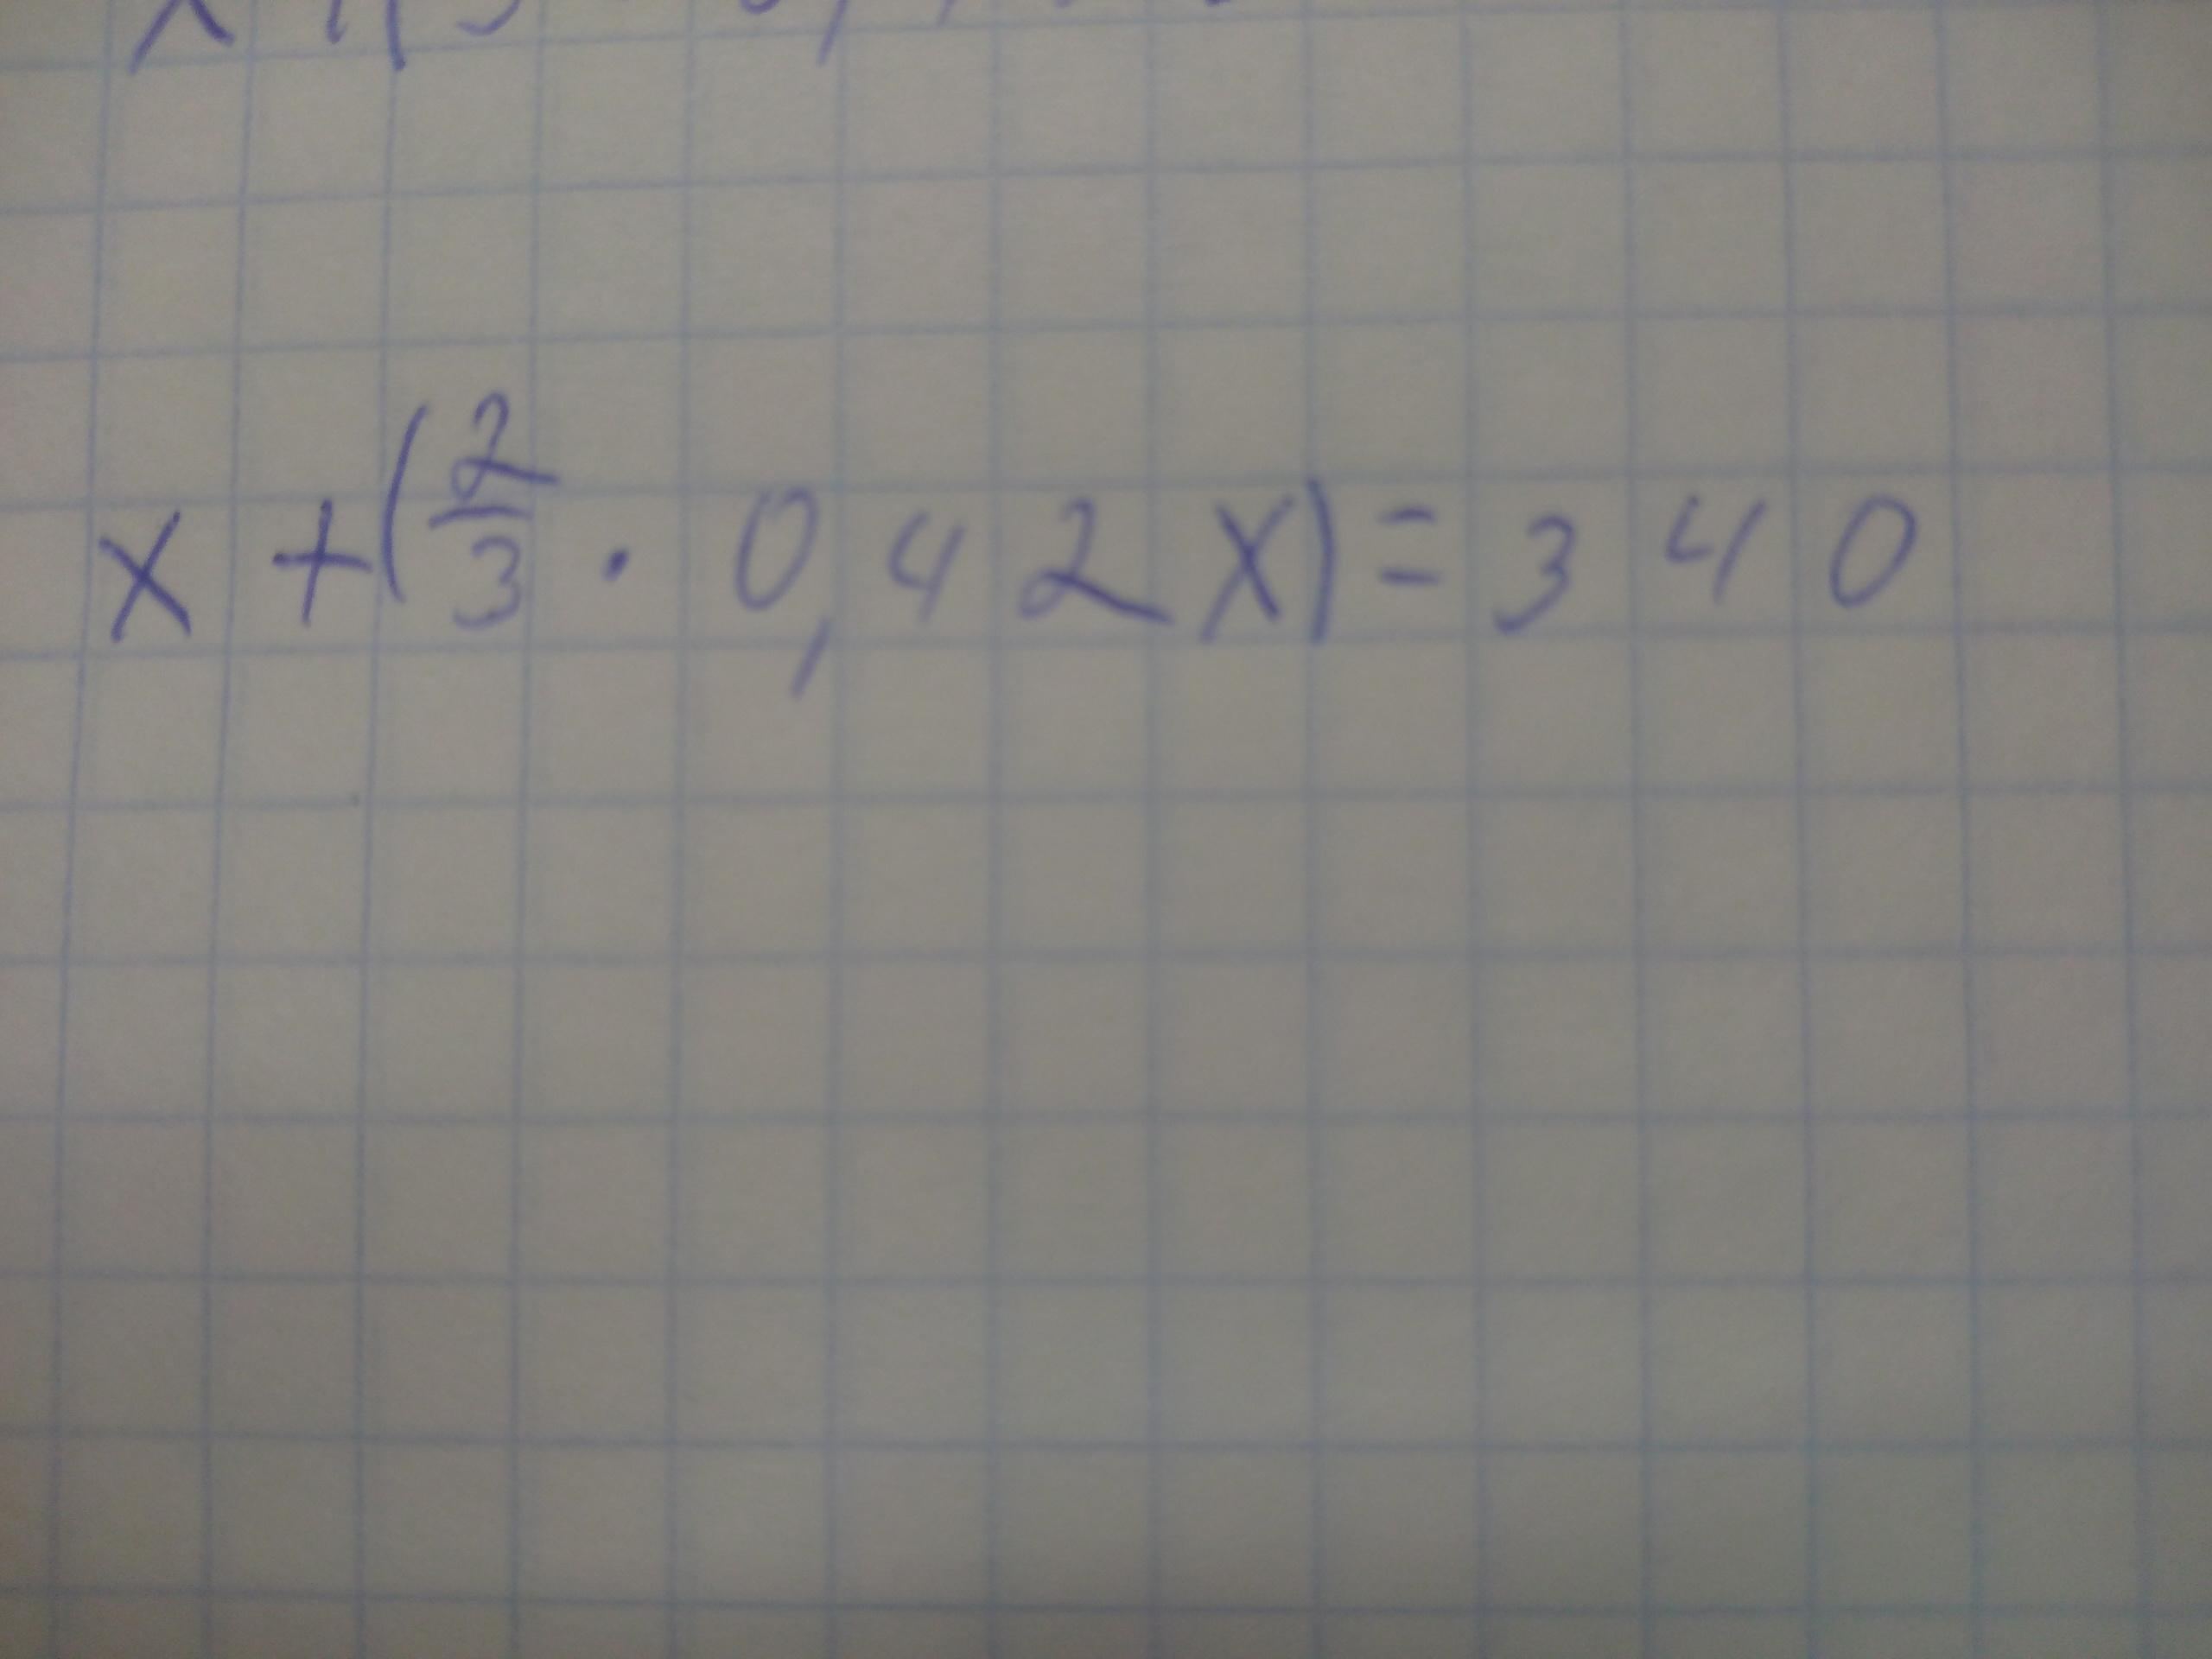 x + (2/3 · 0,42x) = 340